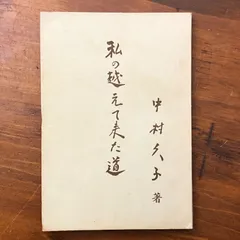 私の越えて来た道
中村久子 著